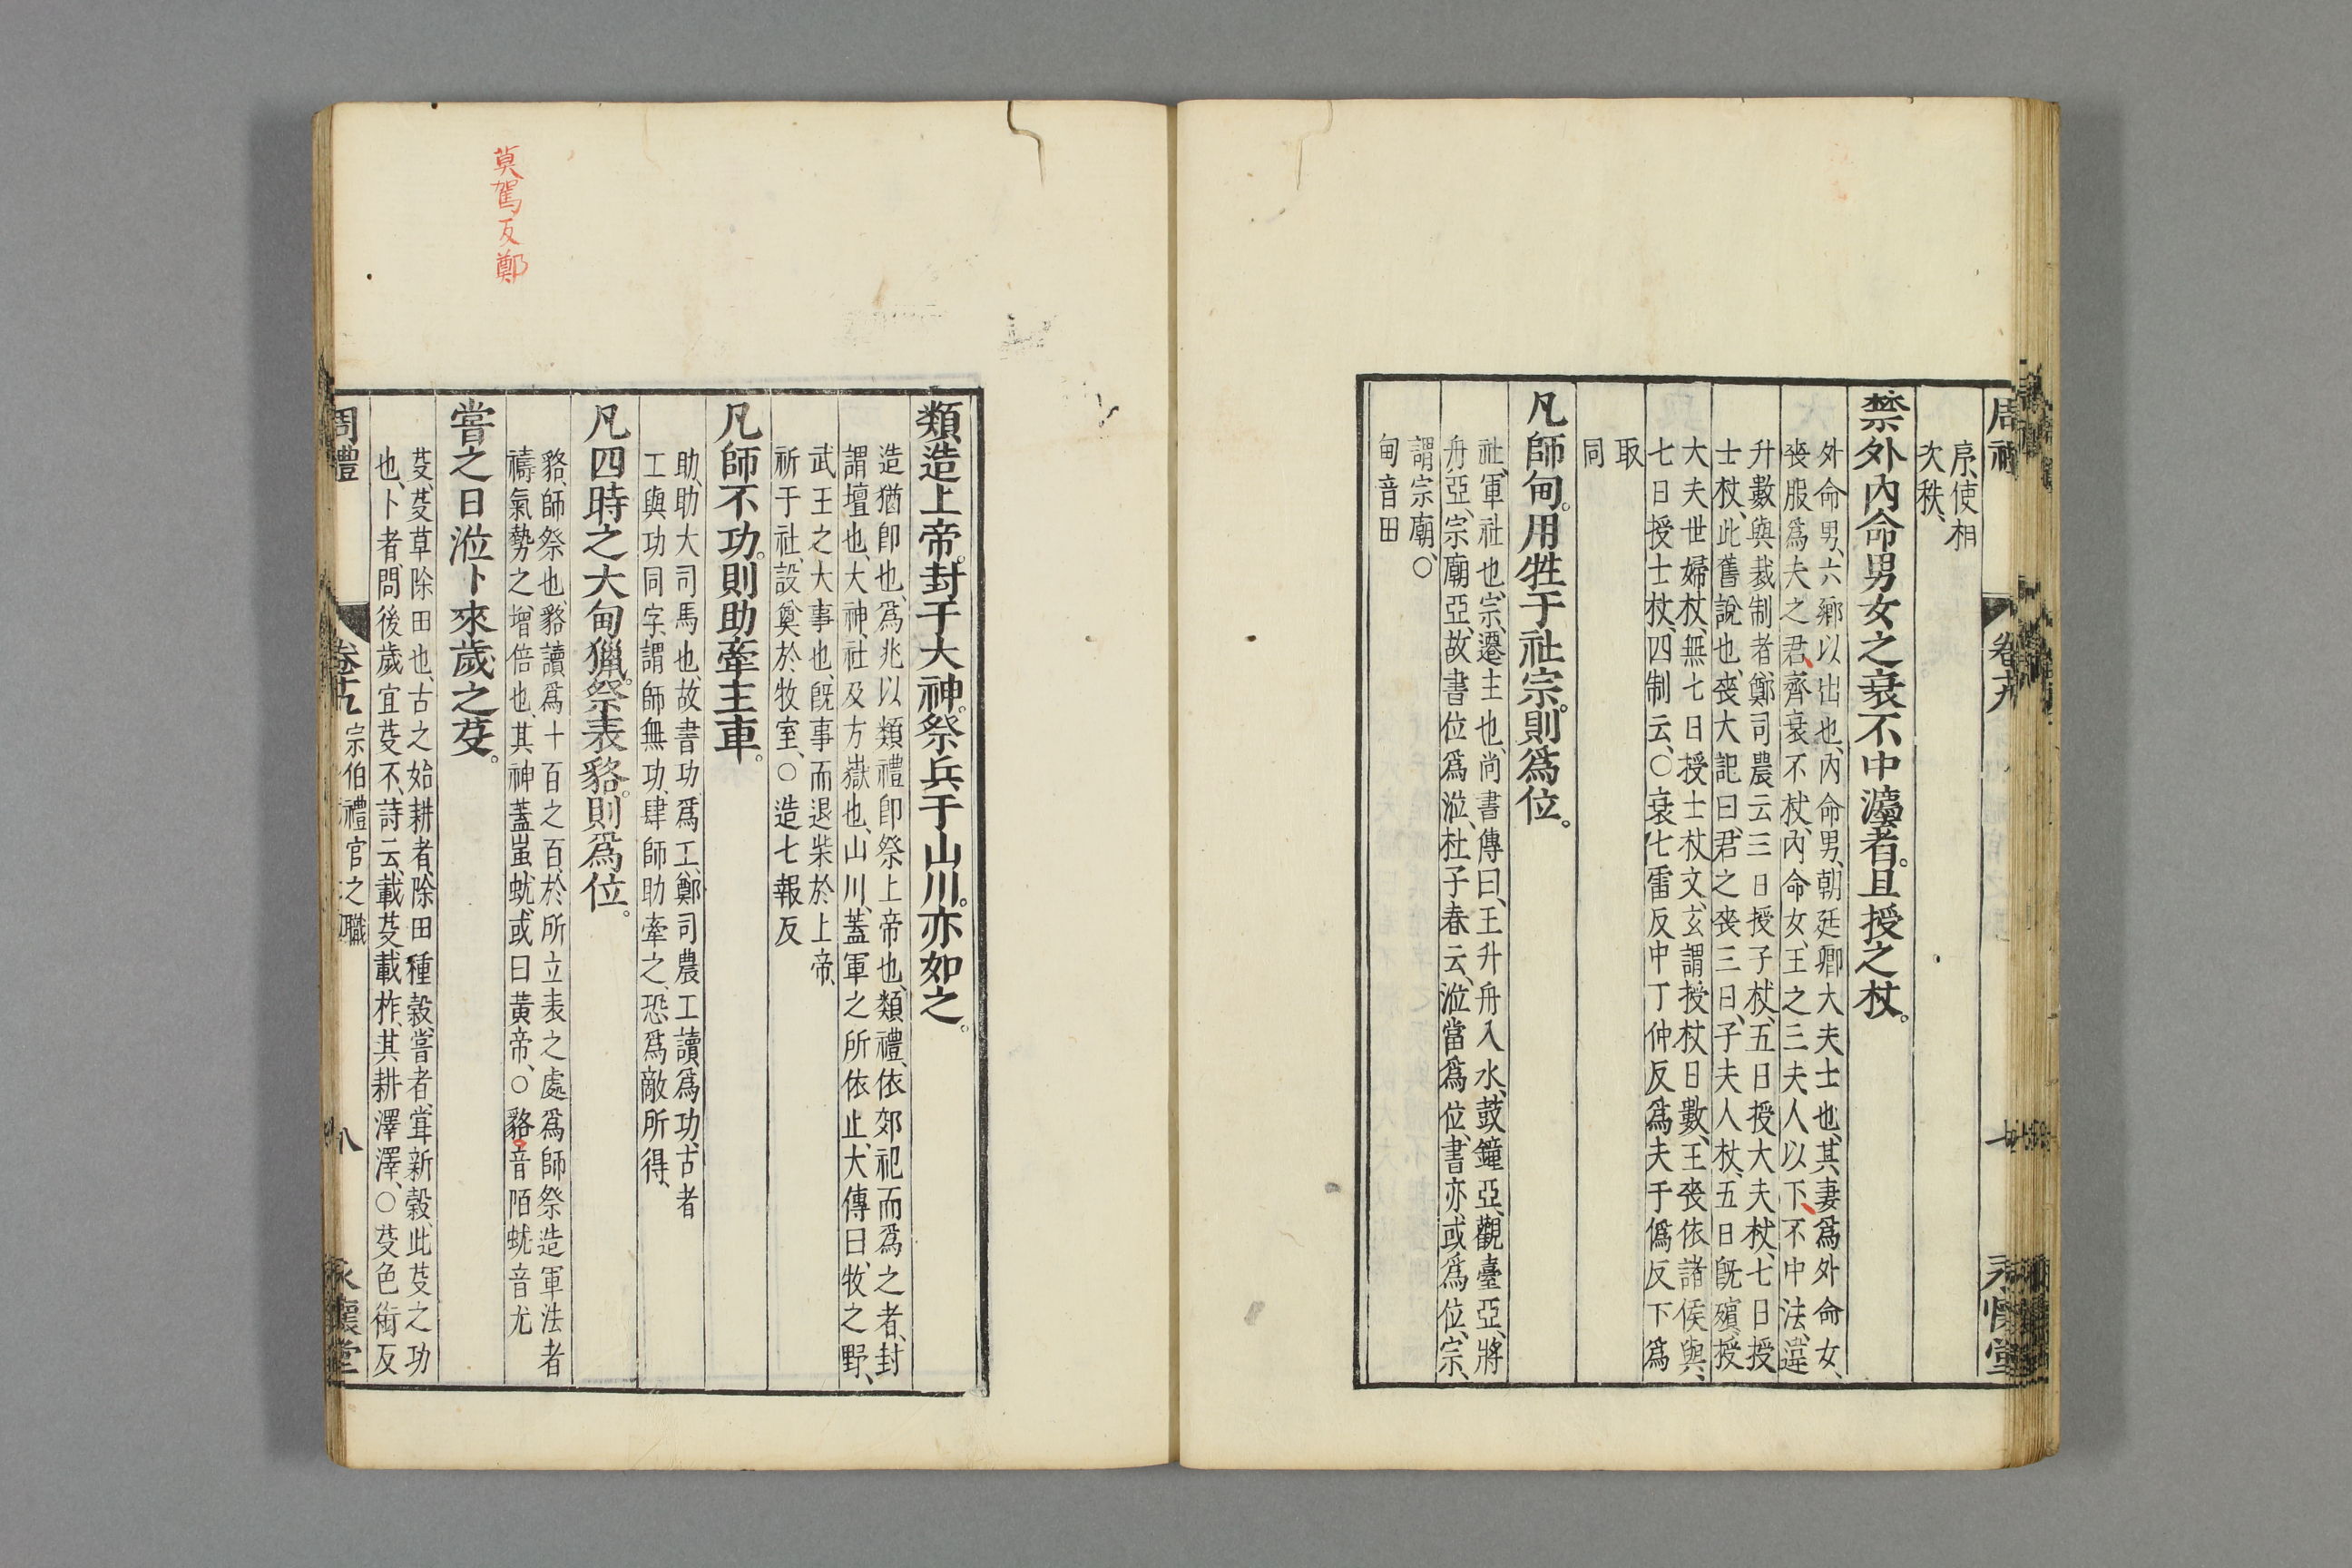 序、使相
次秩、
禁外內命男女之衰不中灋者。且授之杖。
外命男、六鄉以出也、內命男、朝廷卿大夫士也、其妻爲外命女、
喪服爲夫之君、齊衰、不杖、內命女、王之三夫人以下、不中法、違
升數與裁制者、鄭司農云三日授子杖、五日授大夫杖、七日授
士杖、此舊說也、喪大記曰、君之喪三日、子夫人杖、五日旣殯、授
大夫世婦杖、無七日授士杖文、玄謂授杖日數、王喪依諸侯與、
七日授士杖、四制云、○衰七雷反中丁仲反爲夫于僞反下爲
取
同
凡師甸。用牲于社宗。則爲位。
社、軍社也、宗、遷主也、尚書傳曰、王升舟入水、鼓鐘亞、觀臺亞、將
舟亞、宗廟亞、故書位爲涖、杜子春云、涖當爲位、書亦或爲位、宗、
謂宗廟、○
甸音田
類造上帝。封于大神。祭兵于山川。亦如之。
造猶卽也、爲兆以類禮卽祭上帝也、類禮、依郊祀而爲之者、封
謂壇也、大神、社及方嶽也、山川、蓋軍之所依止、大傳曰、牧之野、
武王之大事也、旣事而退柴於上帝、
祈于社、設奠於牧室、○造七報反
凡師不功。則助牽主車。
助、助大司馬也、故書功爲工、鄭司農工讀爲功、古者
工與功同字、謂師無功、肆師助牽之、恐爲敵所得、
凡四時之大甸獵。祭表貉。則爲位。
貉、師祭也、貉讀爲十百之百、於所立表之處爲師祭、造軍法者
禱氣勢之增倍也、其神蓋蚩蚘、或曰黃帝、○貉音陌蚘音尤
嘗之日涖卜來歲之芟。
芟、芟草除田也、古之始耕者、除田種穀、嘗者、嘗新穀、此芟之功
也、卜者、問後歲宜芟不、詩云、載芟載柞、其耕澤澤、○芟色銜反
周禮
宗伯禮官之職
八
永懷堂
莫駕反鄭